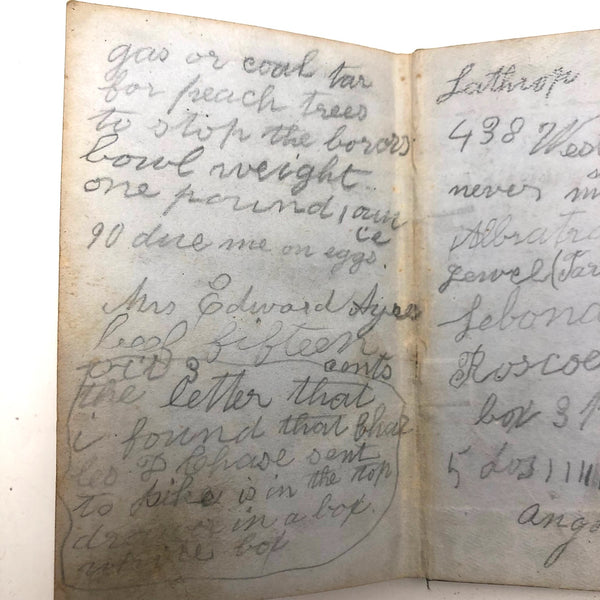 gas or coal tar
for peach trees
to stop the borors
bowl weight
one pound 1 oun
ce
90 due me on eggs.
Mrs Edward Ayres
fifteen
cents
the letter that
i found that Char
les D Chase sent
to pike is in the top
drawer in a box.
box
Lathrop
438 West
never
Albratro
Jewel (Tar
Lebond
Roscoe
box 3
5 dos
ang